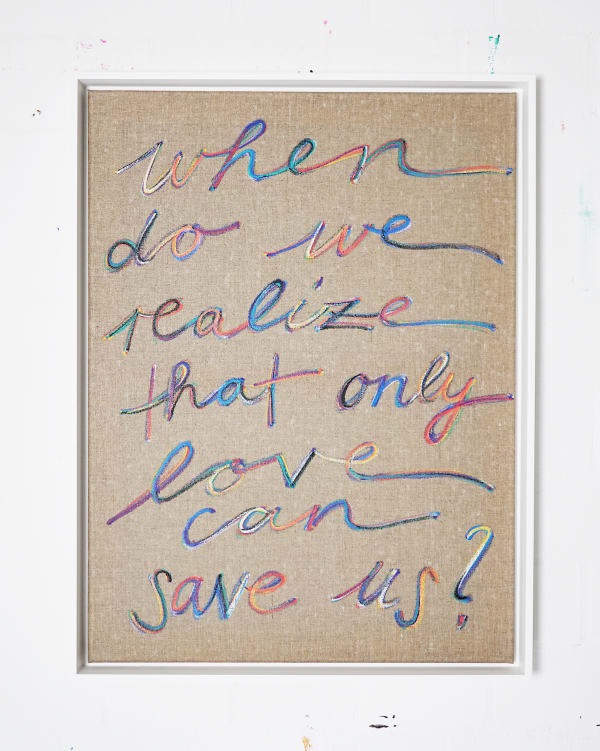 when
do we
realize
that only
love
can
save us?